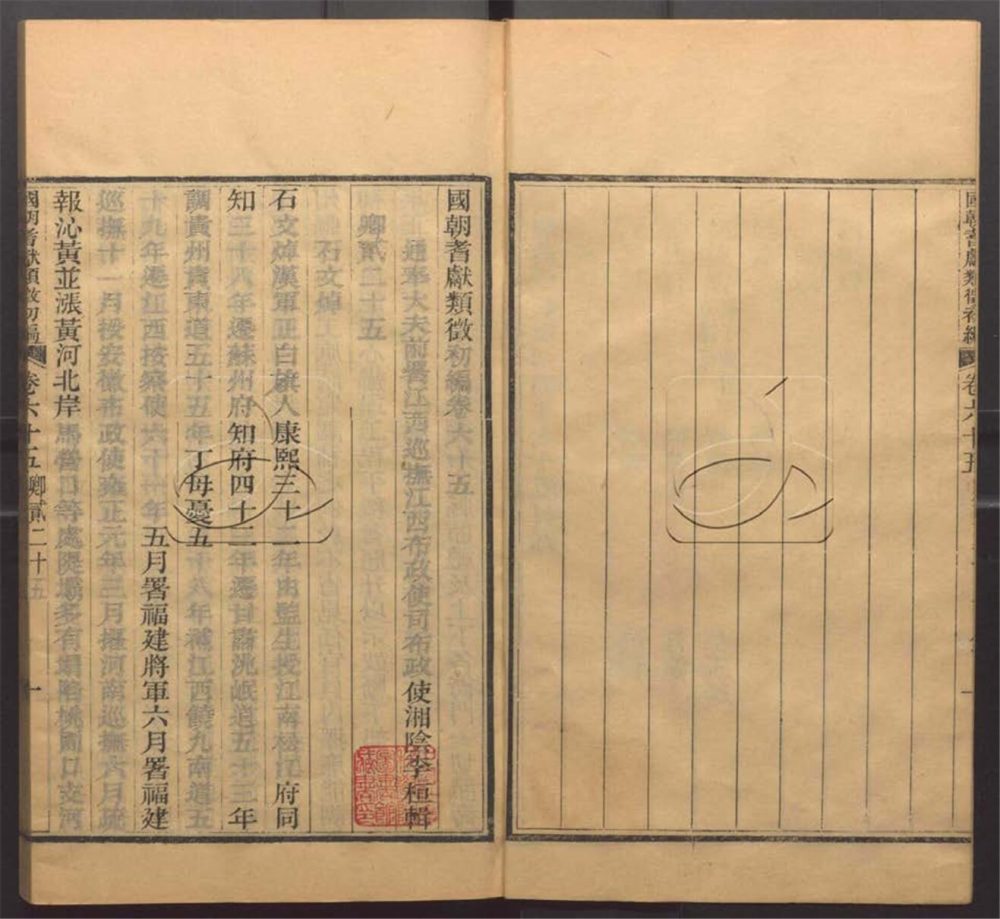 國朝耆獻類徵初編卷六十五
通奉大夫前署江西巡撫江西布政使司布政使湘陰李桓輯
卿貳二十五
石文焯
石文焯漢軍正白旗人康熙三十二年由監生授江南松江府同
知三十八年遷蘇州府知府四十二年遷甘肅洮岷道五十三年
調貴州貴東道五十五年丁母憂五十八年補江西饒九南道五
十九年遷江西按察使六十一年五月署福建將軍六月署福建
巡撫十一月授安徽布政使雍正元年三月擢河南巡撫六月疏
報沁黃並漲黃河北岸馬營口等處隄壩多有塌陷姚期口支河
國朝耆獻類徵初編 卷六十五 卿貳二十五 一